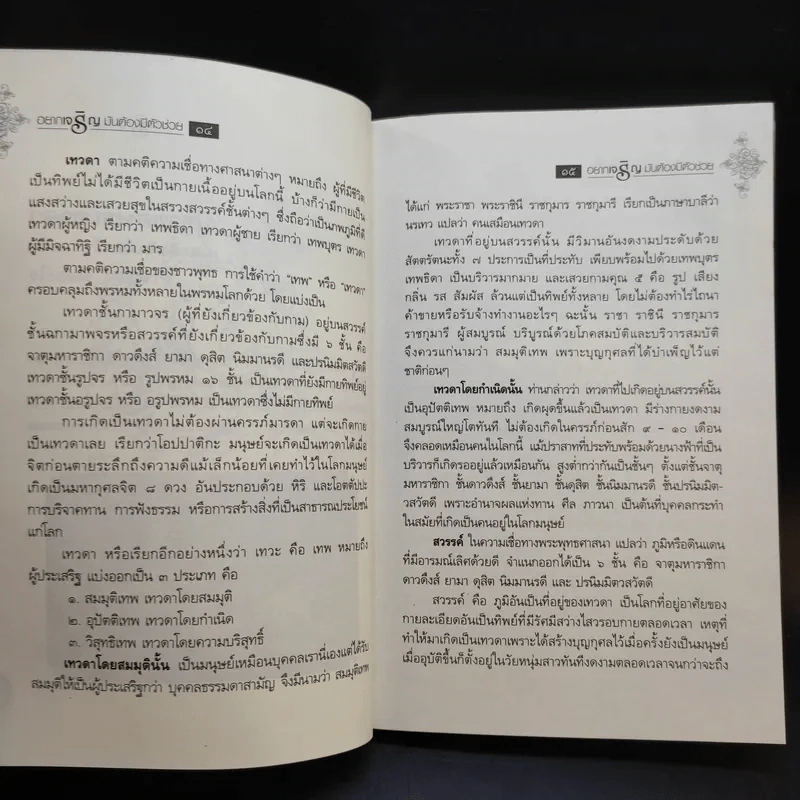 อยากเจริญ มันต้องมีตัวช่วย ๑๔
เทวดา ตามคติความเชื่อทางศาสนาต่างๆ หมายถึง ผู้ที่มีชีวิต
เป็นทิพย์ไม่ได้มีชีวิตเป็นกายเนื้ออยู่บนโลกนี้ บ้างก็ว่ามีกายเป็น
แสงสว่างและเสวยสุขในสรวงสวรรค์ชั้นต่างๆ ซึ่งถือว่าเป็นภพภูมิที่ดี
เทวดาผู้หญิง เรียกว่า เทพธิดา เทวดาผู้ชาย เรียกว่า เทพบุตร เทวดา
ผู้มีมิจฉาทิฐิ เรียกว่า มาร
ตามคติความเชื่อของชาวพุทธ การใช้คำว่า "เทพ" หรือ "เทวดา"
ครอบคลุมถึงพรหมทั้งหลายในพรหมโลกด้วย โดยแบ่งเป็น
เทวดาชั้นกามาวจร (ผู้ที่ยังเกี่ยวข้องกับกาม) อยู่บนสวรรค์
ชั้นฉกามาพจรหรือสวรรค์ที่ยังเกี่ยวข้องกับกามซึ่งมี ๖ ชั้น คือ
จาตุมหาราชิกา ดาวดึงส์ ยามา ดุสิต นิมมานรดี และปรนิมมิตสวัตดี
เทวดาชั้นรูปจร หรือ รูปพรหม ๑๖ ชั้น เป็นเทวดาที่ยังมีกายทิพย์อยู่
เทวดาชั้นอรูปจร หรือ อรูปพรหม เป็นเทวดาซึ่งไม่มีกายทิพย์
การเกิดเป็นเทวดาไม่ต้องผ่านครรภ์มารดา แต่จะเกิดกาย
เป็นเทวดาเลย เรียกว่าโอปปาติกะ มนุษย์จะเกิดเป็นเทวดาได้เมื่อ
จิตก่อนตายระลึกถึงความดีแม้เล็กน้อยที่เคยทำไว้ในโลกมนุษย์
เกิดเป็นมหากุศลจิต ๘ ดวง อันประกอบด้วย หิริ และโอตตัปปะ
การบริจาคทาน การฟังธรรม หรือการสร้างสิ่งที่เป็นสาธารณประโยชน์
แก่โลก
เทวดา หรือเรียกอีกอย่างหนึ่งว่า เทวะ คือ เทพ หมายถึง
ผู้ประเสริฐ แบ่งออกเป็น ๓ ประเภท คือ
๑. สมมุติเทพ เทวดาโดยสมมุติ
๒. อุปัตติเทพ เทวดาโดยกำเนิด
๓. วิสุทธิเทพ เทวดาโดยความบริสุทธิ์
เทวดาโดยสมมุตินั้น เป็นมนุษย์เหมือนบุคคลเรานี่เองแต่ได้รับ
สมมุติให้เป็นผู้ประเสริฐกว่า บุคคลธรรมดาสามัญ จึงมีนามว่า สมมุติเทพ
๑๕ อยากเจริญ มันต้องมีตัวช่วย
ได้แก่ พระราชา พระราชินี ราชกุมาร ราชกุมารี เรียกเป็นภาษาบาลีว่า
นรเทว แปลว่า คนเสมือนเทวดา
เทวดาที่อยู่บนสวรรค์นั้น มีวิมานอันงดงามประดับด้วย
สัตตรัตนะทั้ง ๗ ประการเป็นที่ประทับ เพียบพร้อมไปด้วยเทพบุตร
เทพธิดา เป็นบริวารมากมาย และเสวยกามคุณ ๕ คือ รูป เสียง
กลิ่น รส สัมผัส ล้วนแต่เป็นทิพย์ทั้งหลาย โดยไม่ต้องทำไร่ไถนา
ค้าขายหรือรับจ้างทำงานอะไรๆ ฉะนั้น ราชา ราชินี ราชกุมาร
ราชกุมารี ผู้สมบูรณ์ บริบูรณ์ด้วยโภคสมบัติและบริวารสมบัติ
จึงควรแก่นามว่า สมมุติเทพ เพราะบุญกุศลที่ได้บำเพ็ญไว้แต่
ชาติก่อนๆ
เทวดาโดยกำเนิดนั้น ท่านกล่าวว่า เทวดาที่ไปเกิดอยู่บนสวรรค์นั้น
เป็นอุปัตติเทพ หมายถึง เกิดผุดขึ้นแล้วเป็นเทวดา มีร่างกายงดงาม
สมบูรณ์ใหญ่โตทันที ไม่ต้องเกิดในครรภ์ก่อนสัก ๙ - ๑๐ เดือน
จึงคลอดเหมือนคนในโลกนี้ แม้ปราสาทที่ประทับพร้อมด้วยนางฟ้าที่เป็น
บริวารก็เกิดรออยู่แล้วเหมือนกัน สูงต่ำกว่ากันเป็นชั้นๆ ตั้งแต่ชั้นจาตุ
มหาราชิกา ชั้นดาวดึงส์ ชั้นยามา ชั้นดุสิต ชั้นนิมมานรดี ชั้นปรนิมมิต-
วสวัตดี เพราะอำนาจผลแห่งทาน ศีล ภาวนา เป็นต้นที่บุคคลกระทำ
ในสมัยที่เกิดเป็นคนอยู่ในโลกมนุษย์
สวรรค์ ในความเชื่อทางพระพุทธศาสนา แปลว่า ภูมิหรือดินแดน
ที่มีอารมณ์เลิศด้วยดี จำแนกออกได้เป็น ๖ ชั้น คือ จาตุมหาราชิกา
ดาวดึงส์ ยามา ดุสิต นิมมานรดี และ ปรนิมมิตวสวัตดี
สวรรค์ คือ ภูมิอันเป็นที่อยู่ของเทวดา เป็นโลกที่อยู่อาศัยของ
กายละเอียดอันเป็นทิพย์ที่มีรัศมีสว่างไสวรอบกายตลอดเวลา เหตุที่
ทำให้มาเกิดเป็นเทวดาเพราะได้สร้างบุญกุศลไว้เมื่อครั้งยังเป็นมนุษย์
เมื่ออุบัติขึ้นก็ตั้งอยู่ในวัยหนุ่มสาวทันทีงดงามตลอดเวลาจนกว่าจะถึง